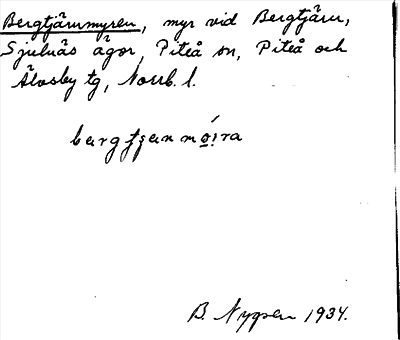 Bergtjärnmyren, myr vid Bergtjärn,
Sjulnäs ägor, Piteå sn, Piteå och
Älvsby tg, Norrb. l.
bargtjanmo̲íra
B. Nygren 1934.